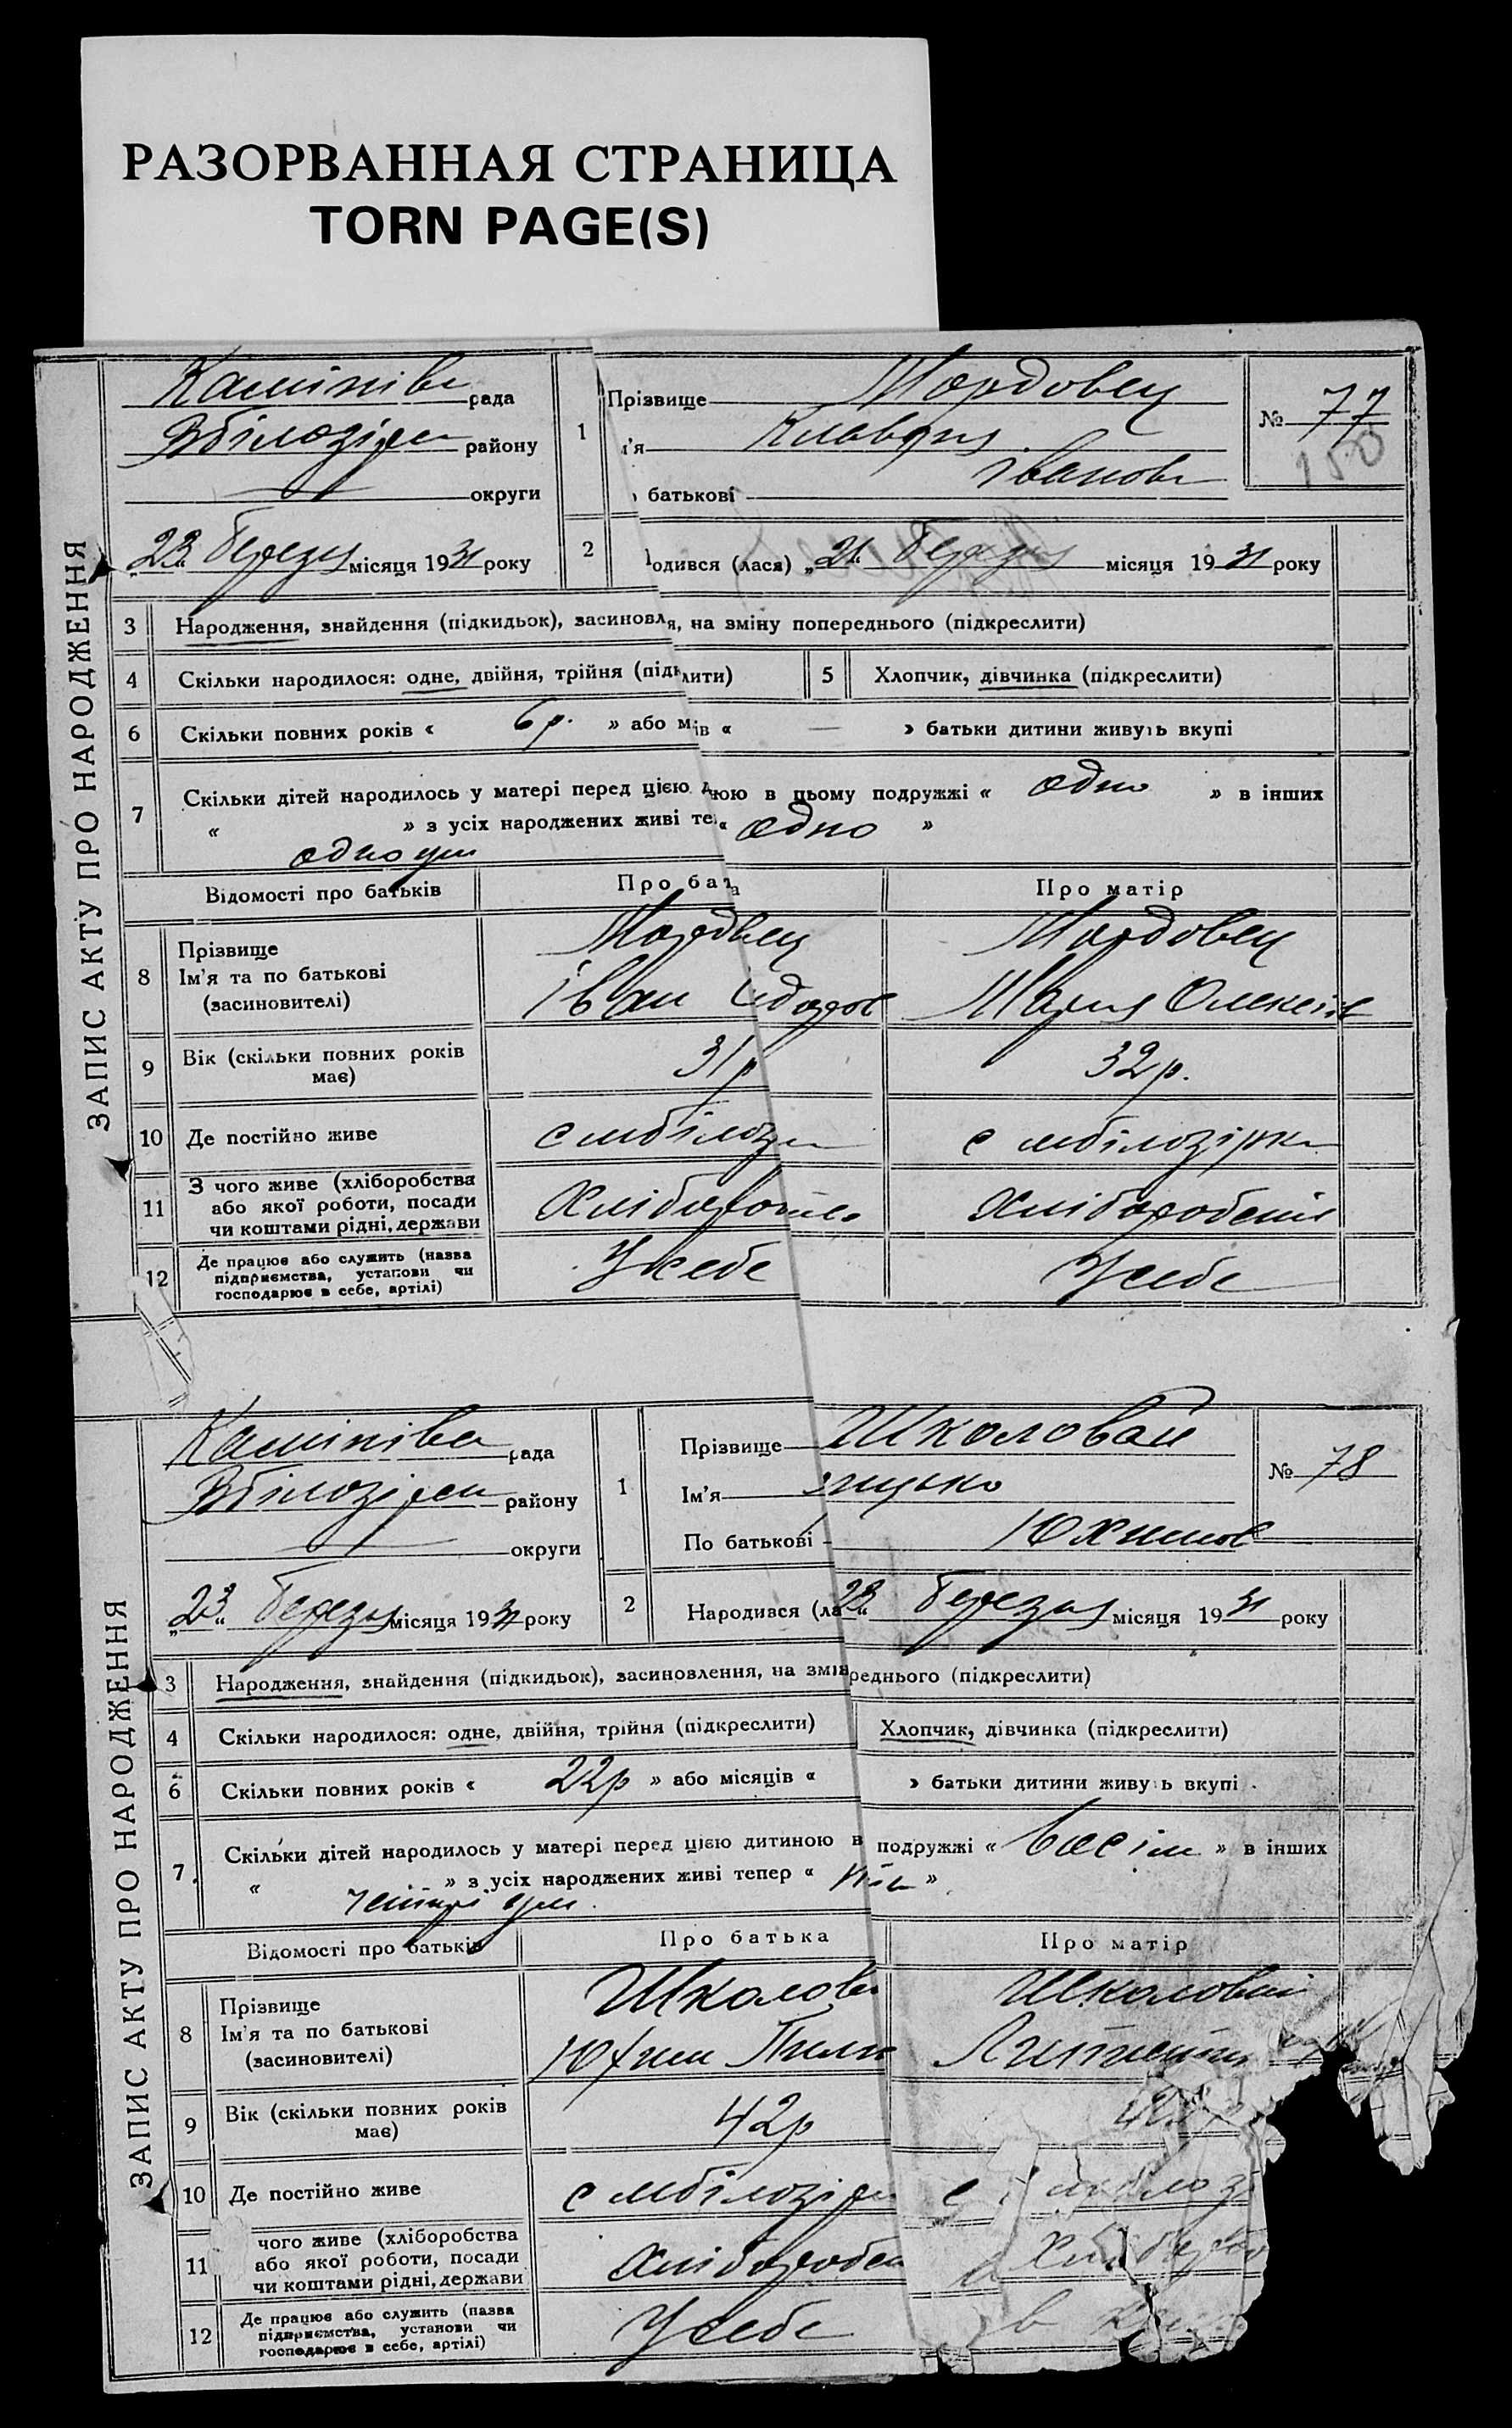 РАЗОРВАННАЯ СТРАНИЦА
TORN PAGE(S)
ЗАПИС АКТУ ПРО НАРОДЖЕННЯ
рада
району
округи
„23“ березня місяця 1931 року
1
Прізвище Мордовец
м'я Клавдия
о батькові Іванов
№ 77
150
2
одився (лася) „21“ березня місяця 1931 року
3 Народження, знайдення (підкидьок), засиновля, на зміну попереднього (підкреслити)
4 Скільки народилося: одне, двійня, трійня (підк лити) 5 Хлопчик, дівчинка (підкреслити)
6 Скільки повних років « 6 р. » або м ів « — » батьки дитини живуть вкупі
7 Скільки дітей народилось у матері перед цією д ною в цьому подружжі « одно » в інших
« » з усіх народжених живі те « одно »
одно ум
Відомості про батьків Про бат а Про матір
8 Прізвище
Ім'я та по батькові
(засиновителі)
Мордовец
Іван Сидоров
Мордовец
Мария Олексіїв
9 Вік (скільки повних років
має)
31 р
32 р.
10 Де постійно живе
с мбілозірки
11 З чого живе (хліборобства
або якої роботи, посади
чи коштами рідні, держави
12 Де працює або служить (назва
підприємства, установи чи
господарює в себе, артілі)
У себе
У себе
ЗАПИС АКТУ ПРО НАРОДЖЕННЯ
рада
району
округи
„23“ березня місяця 1931 року
1
Прізвище Школовай
Ім'я
По батькові Юхимов
№ 78
2
Народився (ла 23“ березня місяця 1931 року
3 Народження, знайдення (підкидьок), засиновлення, на змін реднього (підкреслити)
4 Скільки народилося: одне, двійня, трійня (підкреслити) Хлопчик, дівчинка (підкреслити)
6 Скільки повних років « 22 р » або місяців « » батьки дитини живуть вкупі
7 Скільки дітей народилось у матері перед цією дитиною в подружжі « восім » в інших
« » з усіх народжених живі тепер « »
ум.
Відомості про батьків Про батька Про матір
8 Прізвище
Ім'я та по батькові
(засиновителі)
Школов
Юхим Пили
Школовай
9 Вік (скільки повних років
має)
42 р
10 Де постійно живе
с мбілозірки
11 чого живе (хліборобства
або якої роботи, посади
чи коштами рідні, держави
12 Де працює або служить (назва
підприємства, установи чи
господарює в себе, артілі)
У себе